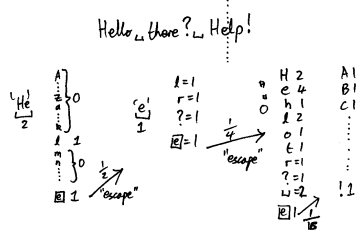 Hello␣there?␣Help!
'He'
2
A
z
a
k
0
l 1
m
n
0
[e] 1
1/2
"escape"
'e'
1
l=1
r=1
?=1
[e]=1
1/4
"escape"
0
H 2
e 4
h 1
l 2
o 1
t 1
r=1
?=1
␣=2
[e] 1
1/18
A 1
B 1
C 1
! 1